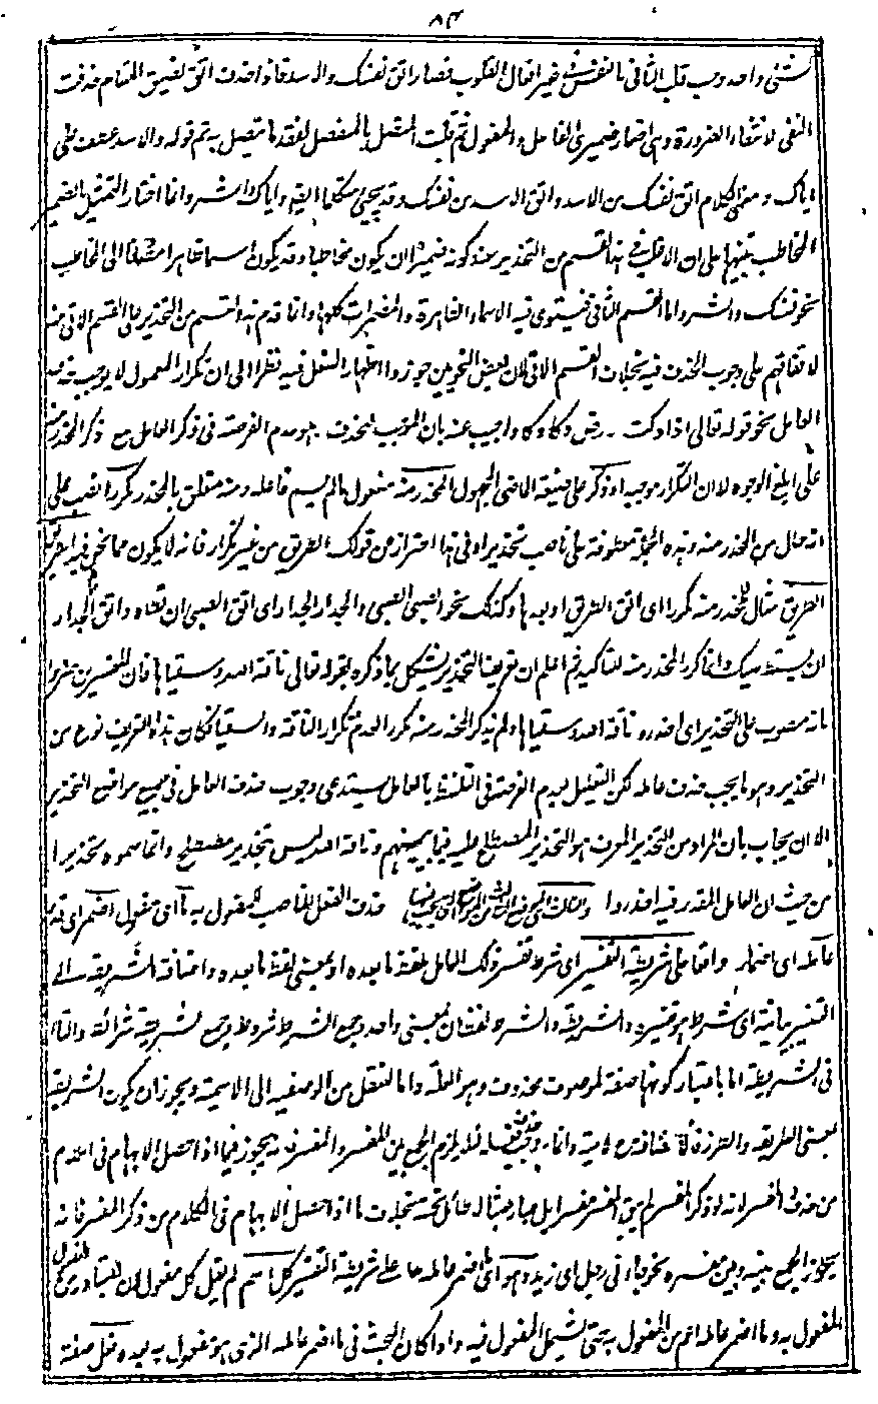 ٨٤
لشئ واحد وجب قلب الثانى بالنفس فى غير افعال القلوب فصار اتق نفسك والاسد فاذا حذفت اتق لضيق المقام حذفت
النفس لانتفاء الضرورة وهى اضمار ضميرى الفاعل والمفعول ثم قلبت المتصل بالمنفصل لفقد ما يتصل به ثم قوله والاسد عطف على
اياك ومعنى الكلام اتق نفسك من الاسد واتق الاسد من نفسك وقد يجئ متكلما ايضا واياك والشر وانما اختار التمثيل بالضمير
المخاطب تنبيها على ان الاغلب فى هذا القسم من التحذير عند كونه ضميرا ان يكون مخاطبا وقد يكون اسما ظاهرا مضافا الى المخاطب
نحو نفسك والشر واما القسم الثانى فيستوى فيه الاسماء الظاهرة والمضمرات كلها وانما قدم هذا القسم من التحذير على القسم الاتى منه
لاتفاقهم على وجوب الحذف فيه بخلاف القسم الاتى لان بعض النحويين جوزوا اظهار الفعل فيه نظرا الى ان تكرار المعمول لا يوجب حذف
العامل نحو قوله تعالى اذا دكت الارض دكا دكا واجيب عنه بان الموجب للحذف هو عدم الفرصة فى ذكر العامل مع ذكر المحذر منه
على ابلغ الوجوه لا ان التكرار موجبه او ذكر على صيغة الماضى المجهول المحذر منه مفعول مالم يسم فاعله ومنه متعلق بالمحذر مكررا نصب على
انه حال من المحذر منه وهذه الجملة معطوفة على ناصب تحذيرا وفى هذا احتراز عن قولك الطريق من غير تكرار فانه لا يكون مما نحن فيه نحو الطريق
الطريق مثال للمحذر منه مكررا اى اتق الطريق او بعدها وكذلك نحو الصبى الصبى والجدار الجدار اى اتق الصبى ان تطاه واتق الجدار
ان يسقط عليك وانما كرر المحذر منه للتاكيد ثم اعلم ان تعريف التحذير يشكل بما ذكره بقوله تعالى ناقة الله وسقياها فان المفسرين صرحوا
بانه منصوب على التحذير اى احذروا ناقة الله وسقياها ولم يذكر المحذر منه مكررا لعدم تكرار الناقة والسقيا فكان هذا التعريف نوع من
التحذير وهو ما يجب حذف عامله لكن التعليل بعدم الفرصة فى التلفظ بالعامل يستدعى وجوب حذف العامل فى جميع مواضع التحذير
الا ان يجاب بان المراد من التحذير المعرف هو التحذير المصطلح عليه فيما بينهم وناقة الله ليس بتحذير مصطلح وانما سموه تحذيرا
من حيث ان العامل المقدر فيه احذروا والثالث اى الموضع الثالث من المواضع التى يجب فيها حذف الفعل الناصب للمفعول به ما اى مفعول اضمر اى قدر
عامله اى اضمار واقعا على شريطة التفسير اى شرط تفسير ذلك العامل بلفظ ما بعده او بمعنى لفظ ما بعده واضافة الشريطة الى
التفسير بيانية اى بشرط هو تفسيره والشريطة والشرط لغتان بمعنى واحد وجمع الشرط شروط وجمع الشريطة شرائط والتاء
فى الشريطة اما باعتبار كونها صفة لموصوف محذوف وهو العلة واما للنقل من الوصفية الى الاسمية ويجوز ان يكون الشريطة
بمعنى الطريقة والاضافة لامية وانما وجب حذفه لئلا يلزم الجمع بين المفسر والمفسر فانه يجوز فيما اذا حصل الابهام فى الكلام
من حذف المفسر انه لو ذكر المفسر لم يبق المفسر مفسرا بل صار عبثا لا طائل تحته بخلاف ما اذا حصل الابهام فى الكلام من ذكر المفسر فانه
يجوز الجمع بينه وبين مفسره نحو جاءنى رجل اى زيد وهو اى ما اضمر عامله على شريطة التفسير كل اسم لم يقل كل مفعول لان المتبادر من المفعول
المفعول به وما اضمر عامله اعم من المفعول به حتى يشمل المفعول فيه واذا كان البحث فى ما اضمر عامله الذى هو مفعول به بعده فعل صفة